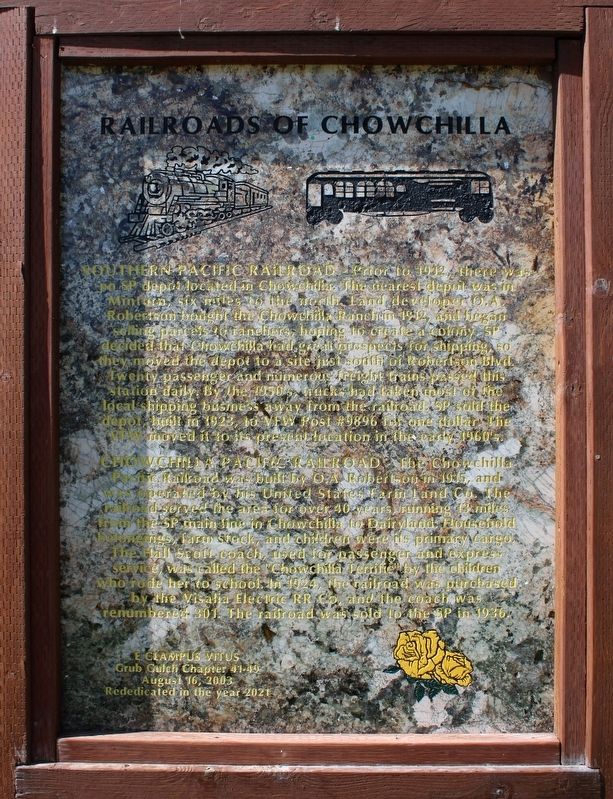 RAILROADS OF CHOWCHILLA
SOUTHERN PACIFIC RAILROAD - Prior to 1912, there was
no SP depot located in Chowchilla. The nearest depot was in
Minturn, six miles to the north. Land developer O.A.
Robertson bought the Chowchilla Ranch in 1912, and began
selling parcels to ranchers, hoping to create a colony. SP
decided that Chowchilla had great prospects for shipping, so
they moved the depot to a site just south of Robertson Blvd.
Twenty passenger and numerous freight trains passed this
station daily. By the 1950's, trucks had taken most of the
local shipping business away from the railroad. SP sold the
depot, built in 1923, to VFW Post #9896 for one dollar. The
VFW moved it to its present location in the early 1960's.
CHOWCHILLA PACIFIC RAILROAD - The Chowchilla
Pacific Railroad was built by O.A. Robertson in 1913, and
was operated by his United States Farm Land Co. The
railroad served the area for over 40 years, running miles
from the SP main line in Chowchilla to Dairyland. Household
belongings, farm stock, and children were its primary cargo.
The Hall Scott coach, used for passenger and express
service, was called the "Chowchilla Terrific" by the children
who rode her to school. In 1924, the railroad was purchased
by the Visalia Electric RR Co. and the coach was
renumbered 301. The railroad was sold to the SP in 1936.
E CLAMPUS VITUS
Grub Gulch Chapter 41-49
August 16, 2003
Rededicated in the year 2021